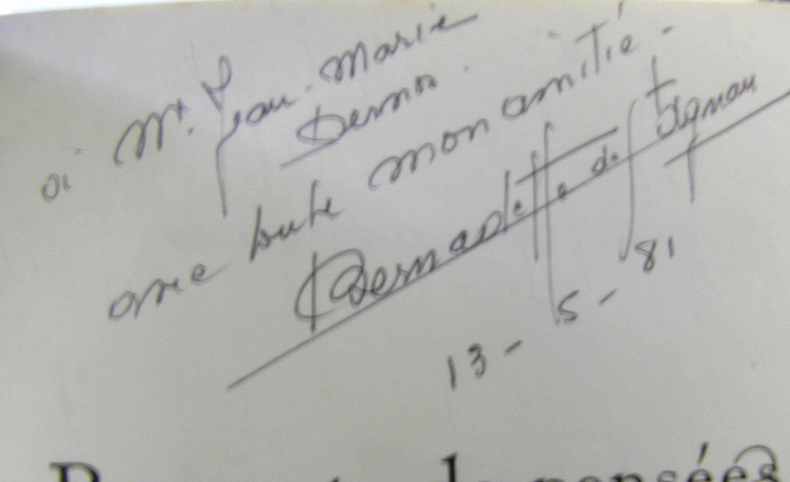 à Mr. Jean-Marie
avec toute mon amitié -
Bernadette de
13 - 5 - 81
de pensées